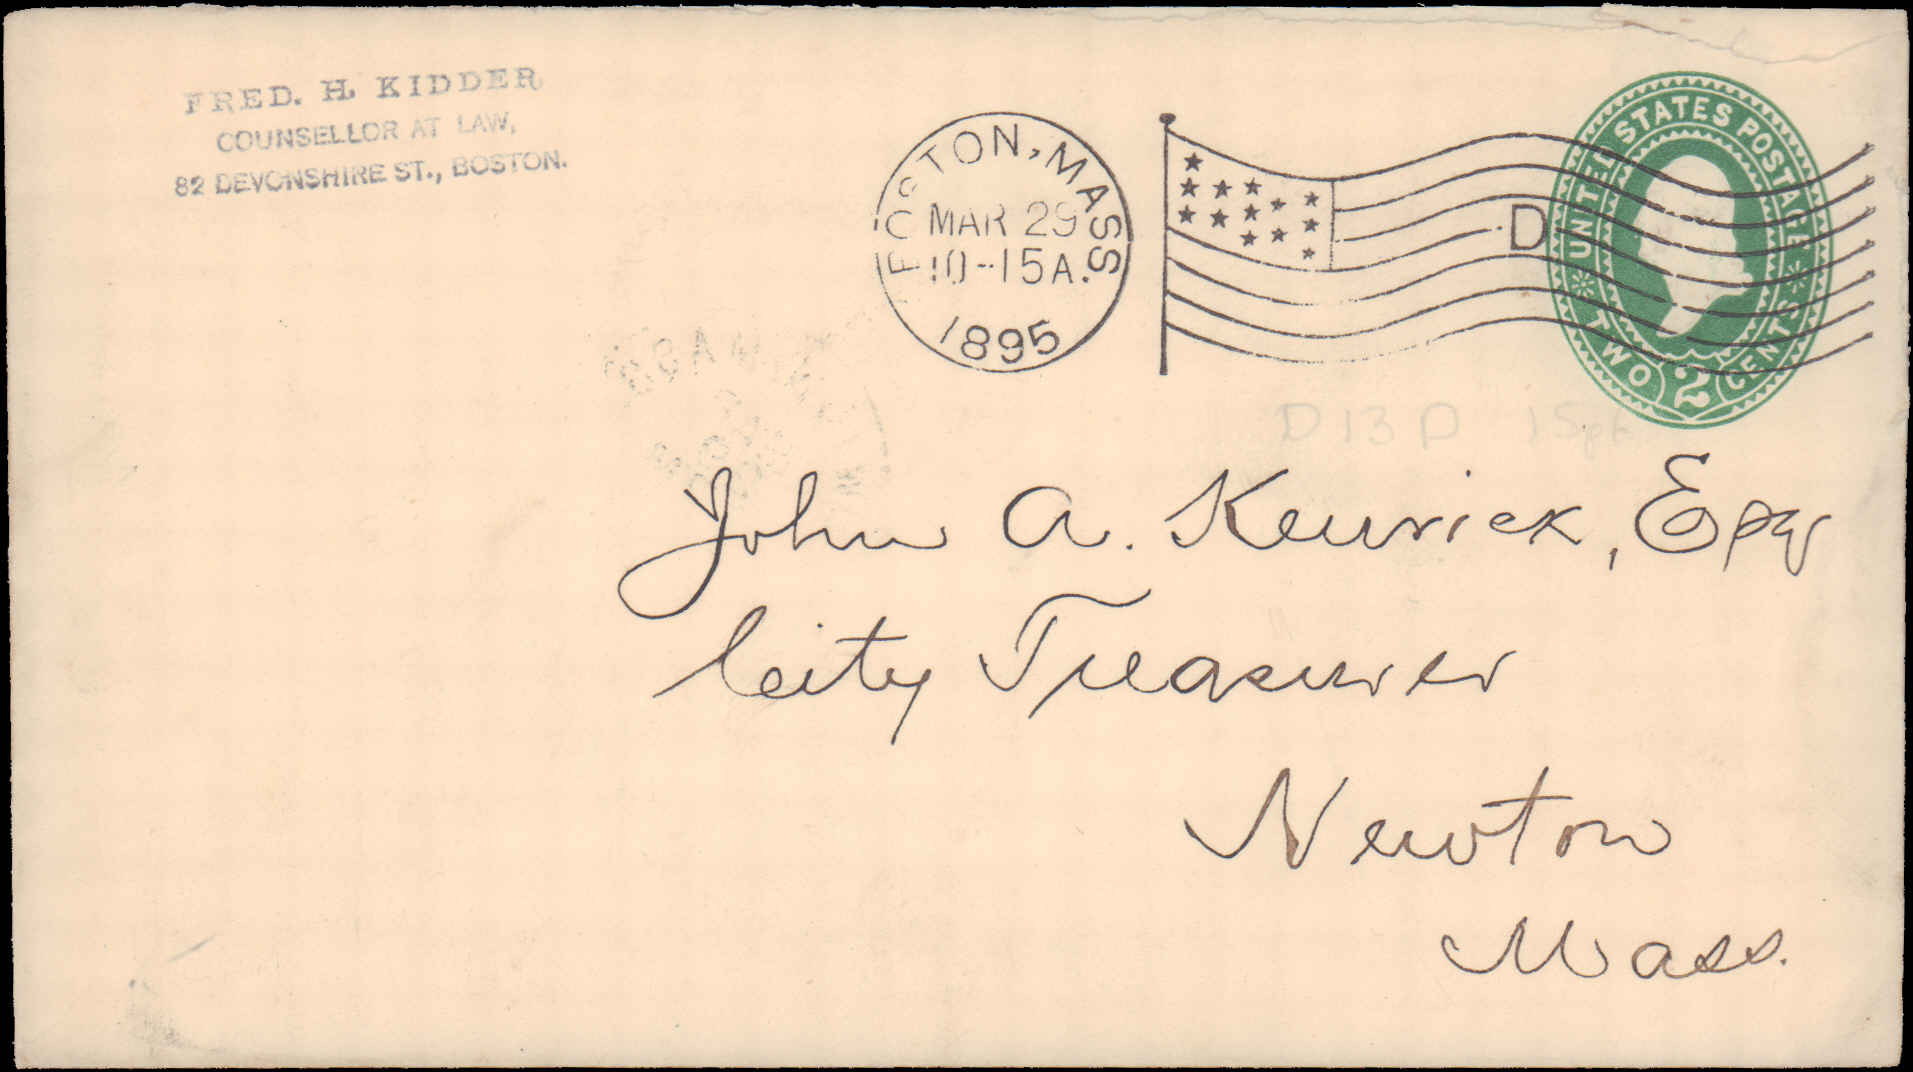 FRED. H. KIDDER
COUNSELLOR AT LAW,
82 DEVONSHIRE ST., BOSTON.
BOSTON, MASS
MAR 29
10-15A.
1895
D
UNITED STATES POSTAGE
TWO 2 CENTS
D13D 15pt
John A. Kenrick, Esq
City Treasurer
Newton
Mass.